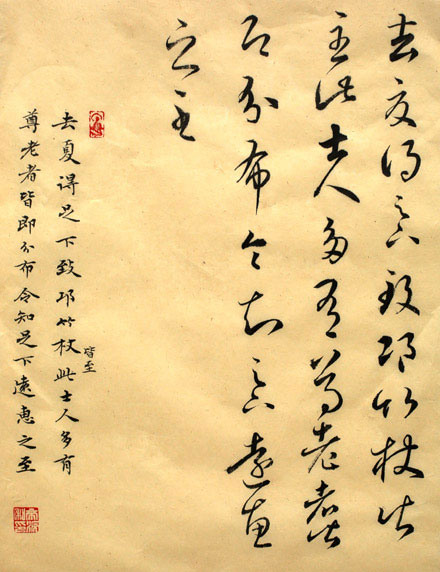 去夏得足下致邛竹杖皆
至此士人多有尊老者皆
即分布令知足下遠惠
之至
去夏得足下致邛竹杖此士人多有
皆至
尊老者皆即分布令知足下遠惠之至